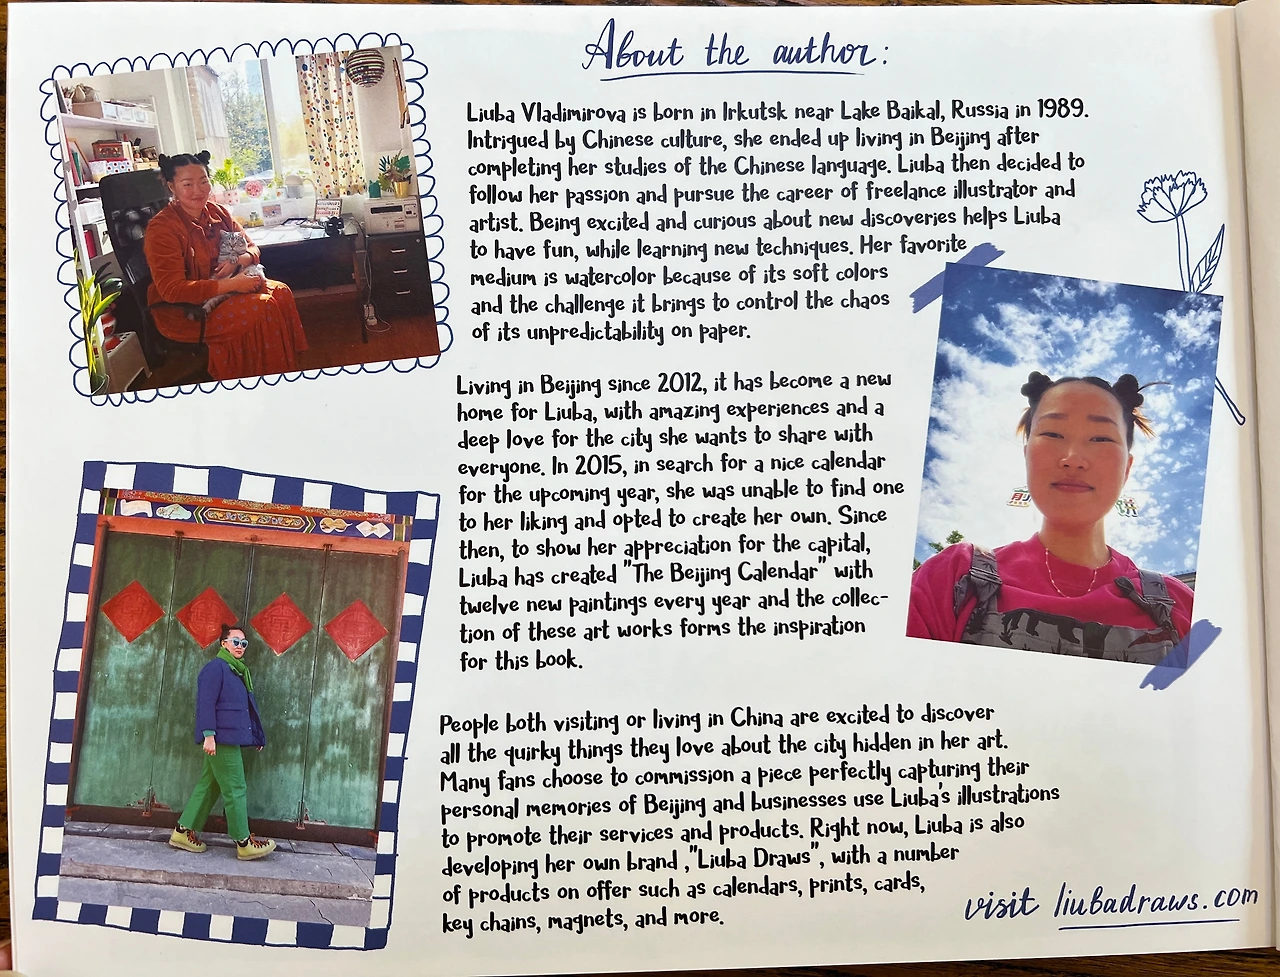 About the author:
Liuba Vladimirova is born in Irkutsk near Lake Baikal, Russia in 1989.
Intrigued by Chinese culture, she ended up living in Beijing after
completing her studies of the Chinese language. Liuba then decided to
follow her passion and pursue the career of freelance illustrator and
artist. Being excited and curious about new discoveries helps Liuba
to have fun, while learning new techniques. Her favorite
medium is watercolor because of its soft colors
and the challenge it brings to control the chaos
of its unpredictability on paper.
Living in Beijing since 2012, it has become a new
home for Liuba, with amazing experiences and a
deep love for the city she wants to share with
everyone. In 2015, in search for a nice calendar
for the upcoming year, she was unable to find one
to her liking and opted to create her own. Since
then, to show her appreciation for the capital,
Liuba has created "The Beijing Calendar" with
twelve new paintings every year and the collec-
tion of these art works forms the inspiration
for this book.
People both visiting or living in China are excited to discover
all the quirky things they love about the city hidden in her art.
Many fans choose to commission a piece perfectly capturing their
personal memories of Beijing and businesses use Liuba's illustrations
to promote their services and products. Right now, Liuba is also
developing her own brand ,"Liuba Draws", with a number
of products on offer such as calendars, prints, cards,
key chains, magnets, and more.
visit liubadraws.com